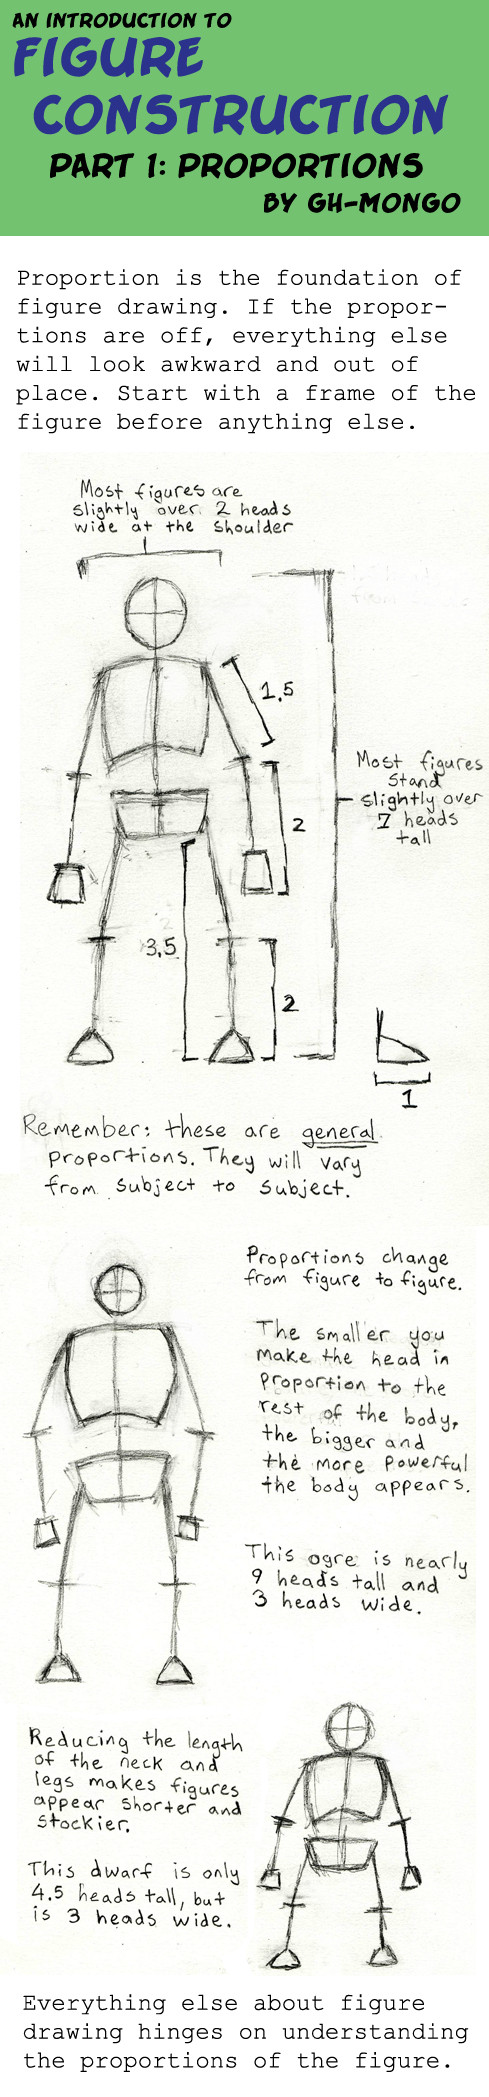 AN INTRODUCTION TO
FIGURE
CONSTRUCTION
PART 1: PROPORTIONS
BY GH-MONGO
Proportion is the foundation of
figure drawing. If the propor-
tions are off, everything else
will look awkward and out of
place. Start with a frame of the
figure before anything else.
Most figures are
slightly over 2 heads
wide at the shoulder
1.5
Most figures
stand
slightly over
7 heads
tall
2
3.5
2
1
Remember: these are general
proportions. They will vary
from subject to subject.
Proportions change
from figure to figure.
The smaller you
make the head in
proportion to the
rest of the body,
the bigger and
the more powerful
the body appears.
This ogre is nearly
9 heads tall and
3 heads wide.
Reducing the length
of the neck and
legs makes figures
appear shorter and
stockier.
This dwarf is only
4.5 heads tall, but
is 3 heads wide.
Everything else about figure
drawing hinges on understanding
the proportions of the figure.